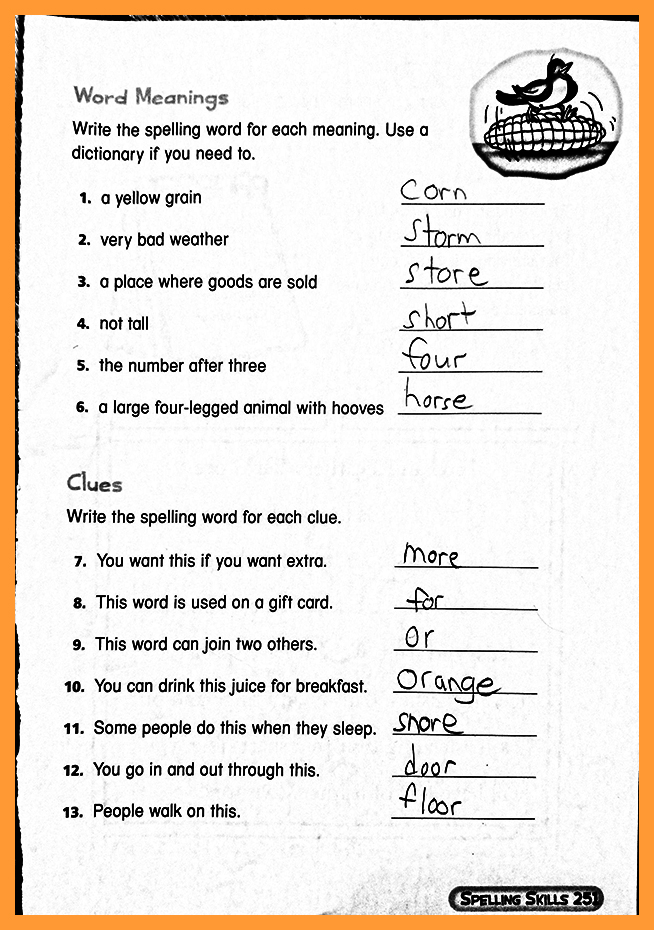 Word Meanings
Write the spelling word for each meaning. Use a
dictionary if you need to.
1. a yellow grain Corn
2. very bad weather Storm
3. a place where goods are sold store
4. not tall short
5. the number after three four
6. a large four-legged animal with hooves horse
Clues
Write the spelling word for each clue.
7. You want this if you want extra. more
8. This word is used on a gift card. for
9. This word can join two others. Or
10. You can drink this juice for breakfast. Orange
11. Some people do this when they sleep. snore
12. You go in and out through this. door
13. People walk on this. floor
SPELLING SKILLS 251